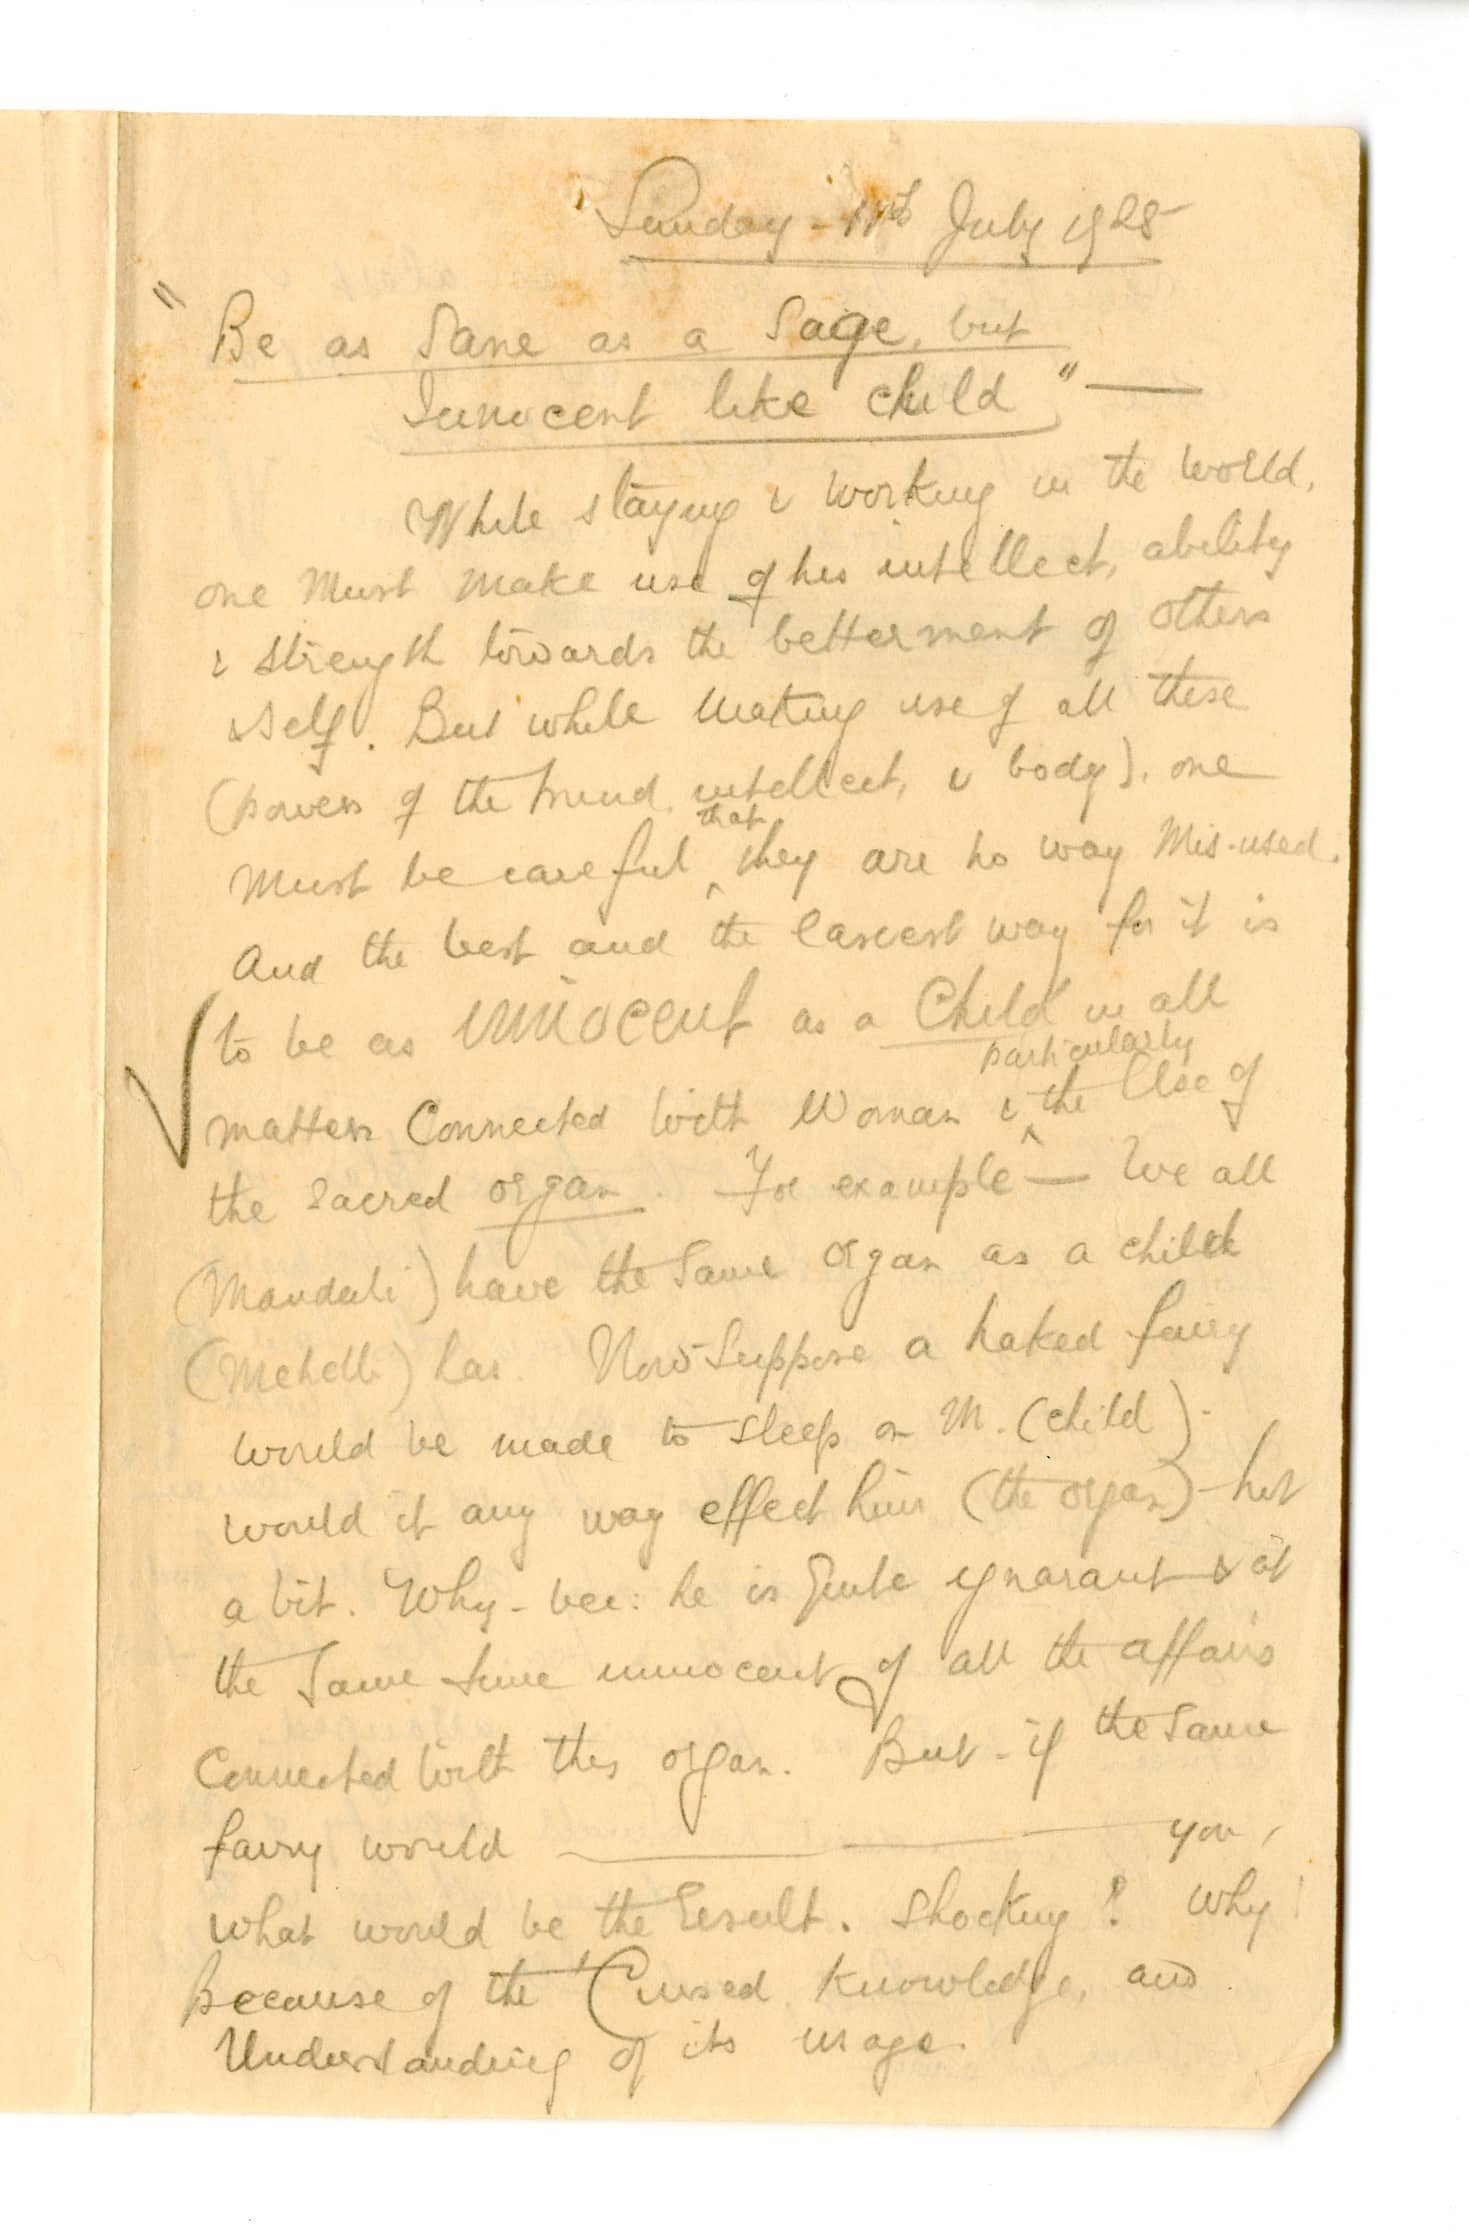 Sunday - 11th July 1925
" Be as Sane as a Sage, but
Innocent like child " —
While staying & working in the world,
one must make use of his intellect, ability
& strength towards the betterment of others
& self. But while making use of all these
(powers of the mind, intellect, & body), one
must be careful that they are no way mis-used.
And the best and the easiest way for it is
to be as innocent as a Child in all
matters connected with woman & particularly the use of
the sacred organ. For example — We all
(Mandali) have the same organ as a child
has. Now suppose a naked fairy
would be made to sleep on M. (child) -
would it any way effect him (the organ) - not
a bit. Why - bec: he is quite ignorant & at
the same time innocent of all the affairs
connected with this organ. But - if the same
fairy would ——— you,
what would be the result. Shocking ? Why !
Because of the Cursed knowledge, and
Understanding of its usage.